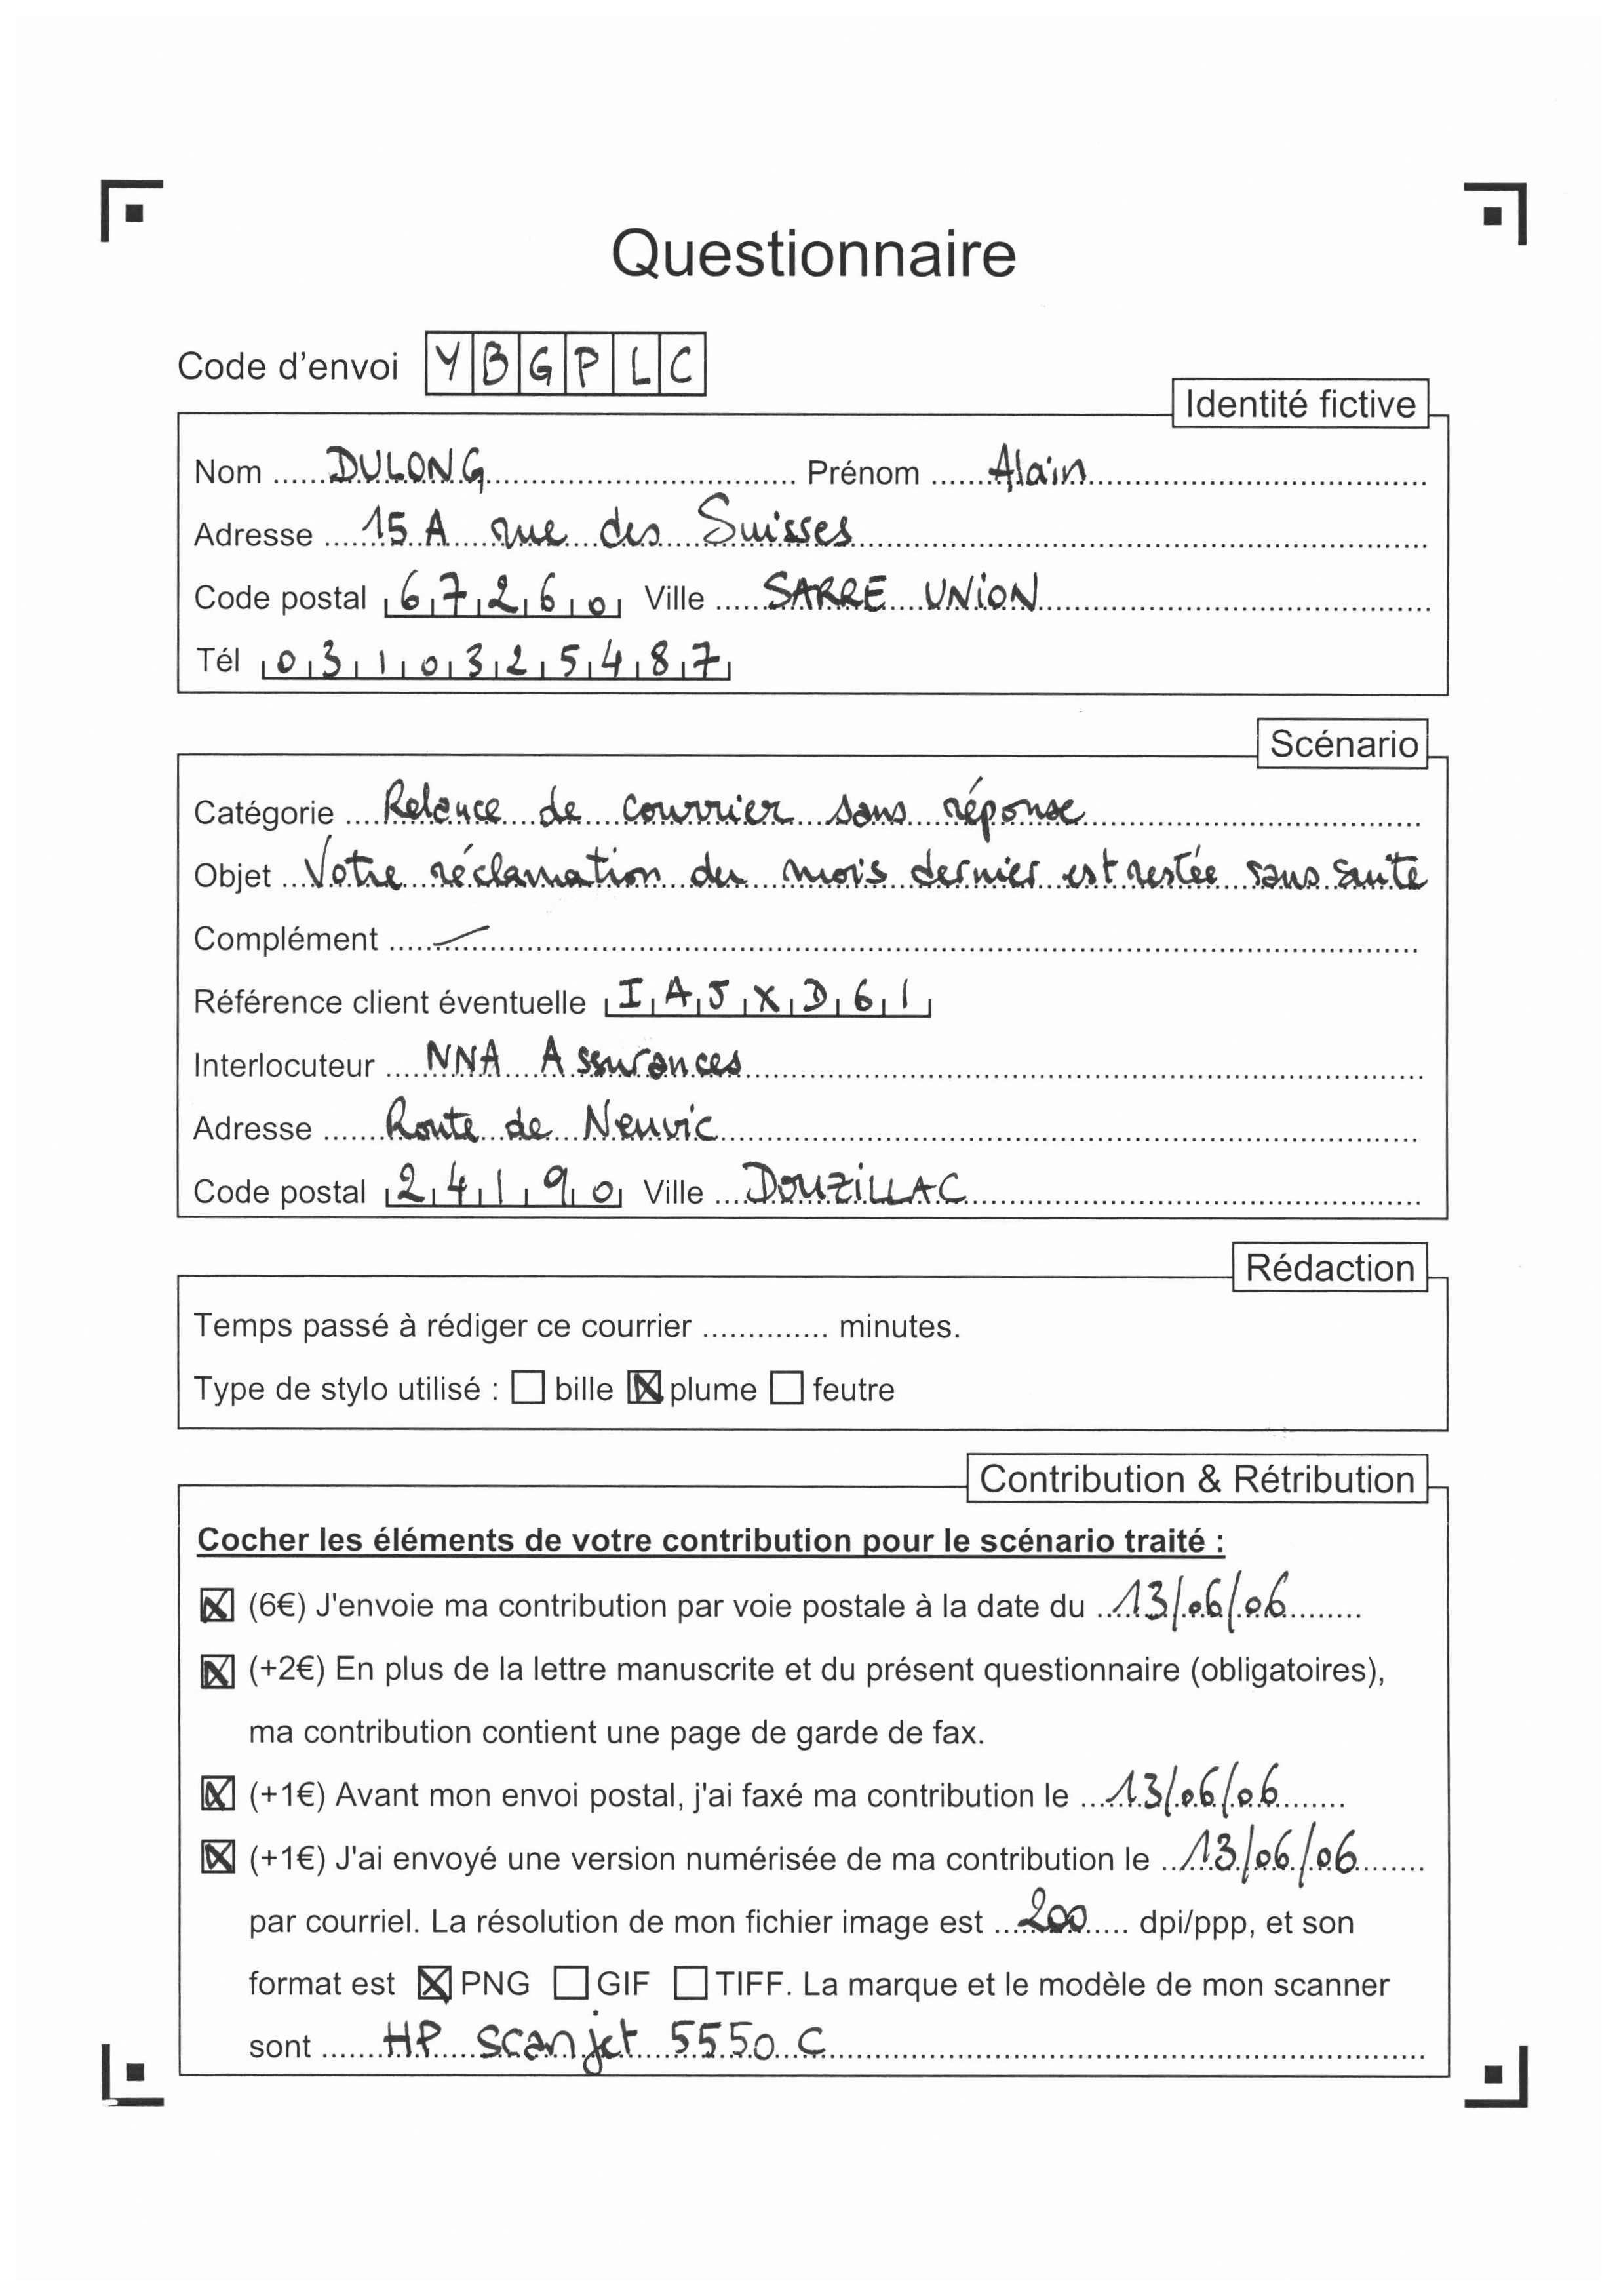 Questionnaire
Code d'envoi YBGPLC
Identité fictive
Nom DULONG Prénom Alain
Adresse 15 A rue des Suisses
Code postal 67260 Ville SARRE UNION
Tél 0310325487
Scénario
Catégorie Relance de courrier sans réponse
Objet Votre réclamation du mois dernier est restée sans suite
Complément
Référence client éventuelle IAJXD61
Interlocuteur NNA Assurances
Adresse Route de Neuvic
Code postal 24190 Ville DOUZILLAC
Rédaction
Temps passé à rédiger ce courrier .............. minutes.
Type de stylo utilisé : ☐ bille ☒ plume ☐ feutre
Contribution & Rétribution
Cocher les éléments de votre contribution pour le scénario traité :
☒ (6€) J'envoie ma contribution par voie postale à la date du 13/06/06
☒ (+2€) En plus de la lettre manuscrite et du présent questionnaire (obligatoires),
ma contribution contient une page de garde de fax.
☒ (+1€) Avant mon envoi postal, j'ai faxé ma contribution le 13/06/06
☒ (+1€) J'ai envoyé une version numérisée de ma contribution le 13/06/06
par courriel. La résolution de mon fichier image est 200 dpi/ppp, et son
format est ☒ PNG ☐ GIF ☐ TIFF. La marque et le modèle de mon scanner
sont HP scanjet 5550 C